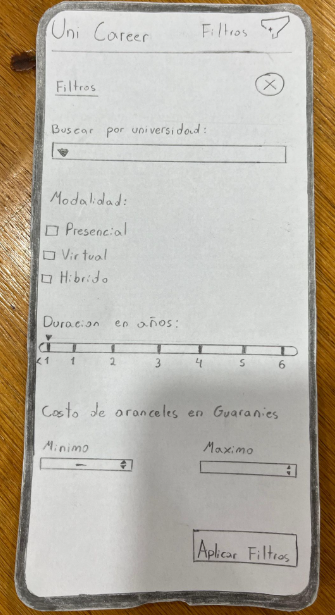 Uni Career Filtros
Filtros
Buscar por universidad:
Modalidad:
Presencial
Virtual
Hibrido
Duracion en años:
<1 1 2 3 4 5 6
Costo de aranceles en Guaranies
Minimo Maximo
Aplicar Filtros